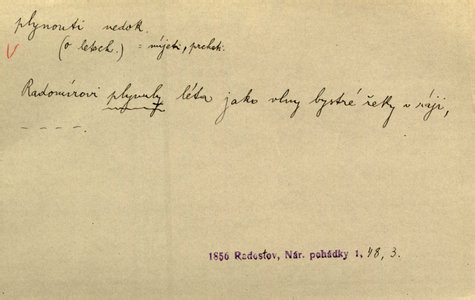 plynouti nedok.
(o letech.) = míjeti, prchati.
Radomírovi plynuly léta jako vlny bystré řeky v ráji,
– – – –.
1856 Radostov, Nár. pohádky 1, 48, 3.